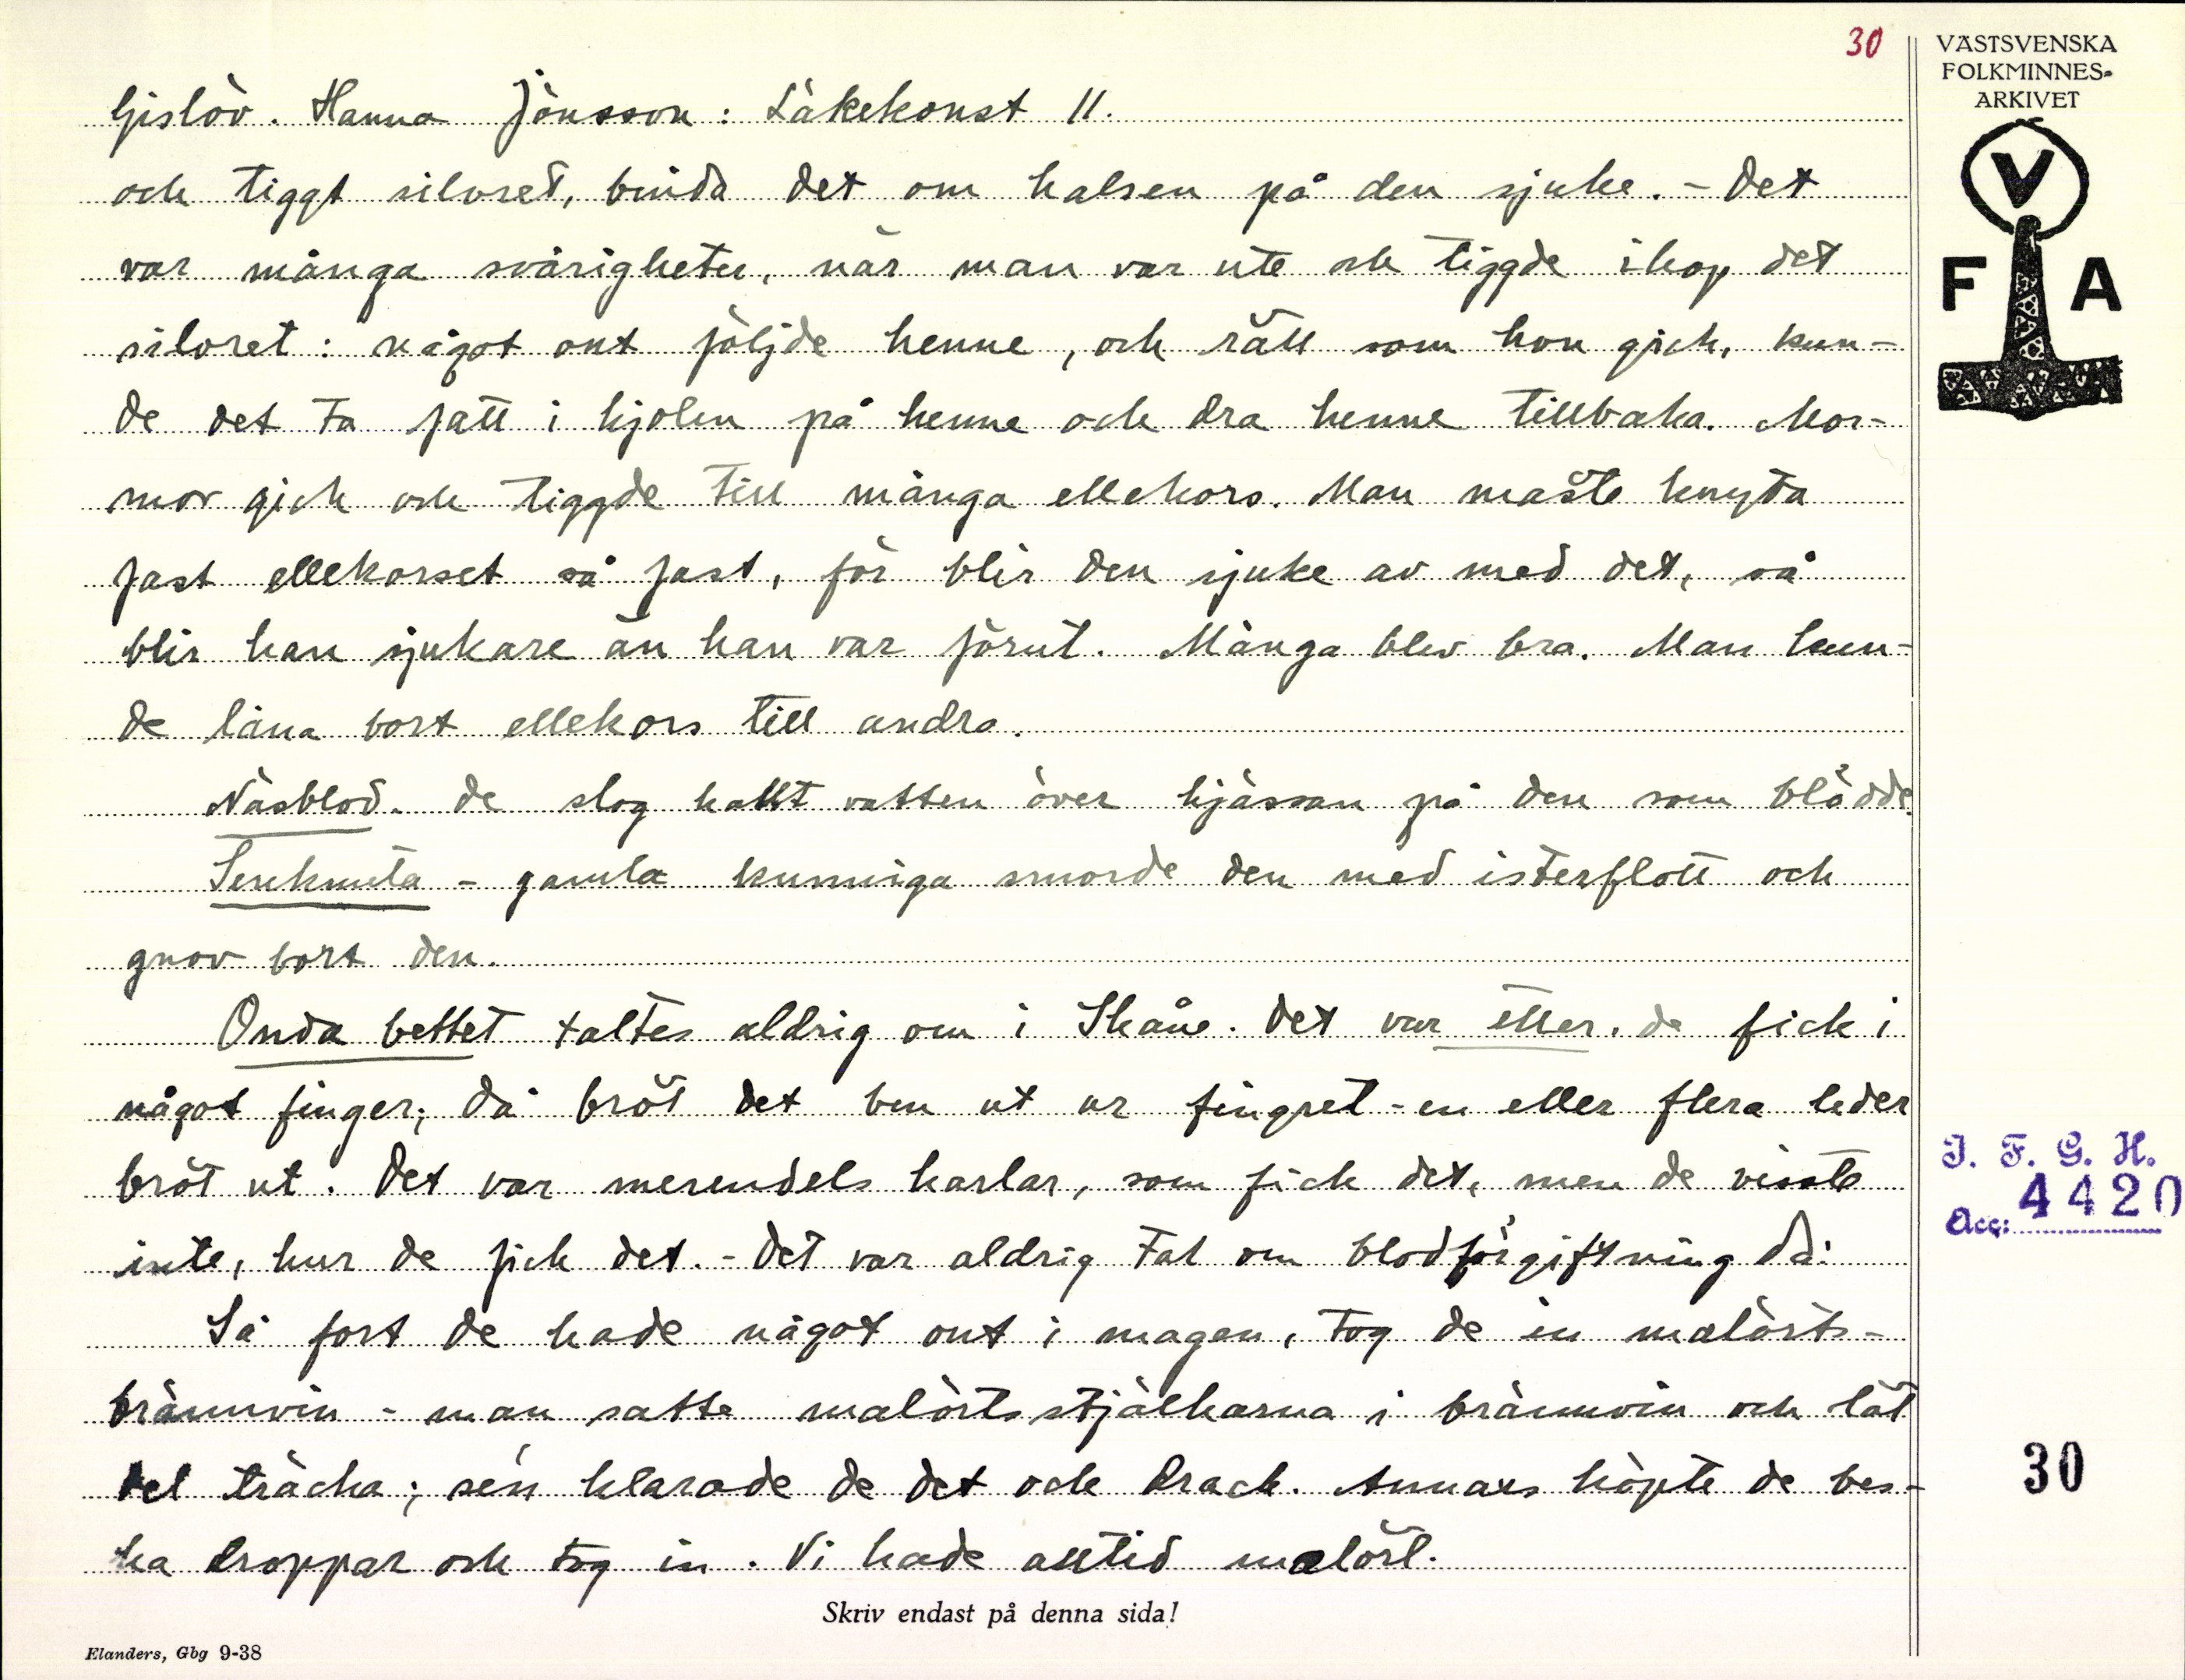 30
Gislöv. Hanna Jönsson: Läkekonst 11.
och tiggt silvret, binda det om halsen på den sjuke. - Det
var många svårigheter, när man var ute och tiggde ihop det
silvret: något ont följde henne, och rätt som hon gick, kun-
de det ta fatt i kjolen på henne och dra henne tillbaka. Mor-
mor gick och tiggde till många ellekors. Man måste knyta
fast ellekorset så fast, för blir den sjuke av med det, så
blir han sjukare än han var förut. Många blev bra. Man kun-
de låna bort ellekors till andra.
Näsblod. de slog kallt vatten över hjässan på den som blödde.
Senknuta - gamla kunniga smorde den med isterflott och
gnov bort den.
Onda bettet taltes aldrig om i Skåne. Det var etter, de fick i
något finger; då bröt det ben ut ur fingret - en eller flera leder
bröt ut. Det var merendels karlar, som fick det, men de visste
inte, hur de fick det. - Det var aldrig tal om blodförgiftning då:
Så fort de hade något ont i magen, tog de in malörts-
brännvin - man satte malörtsstjälkarna i brännvin och lät
det träcka; sén klarade de det och drack. Annars köpte de bes-
ka droppar och tog in. Vi hade alltid malört.
Skriv endast på denna sida!
Elanders, Gbg 9-38
VÄSTSVENSKA
FOLKMINNES-
ARKIVET
V
F A
I. F. G. H.
Acc: 4420
30